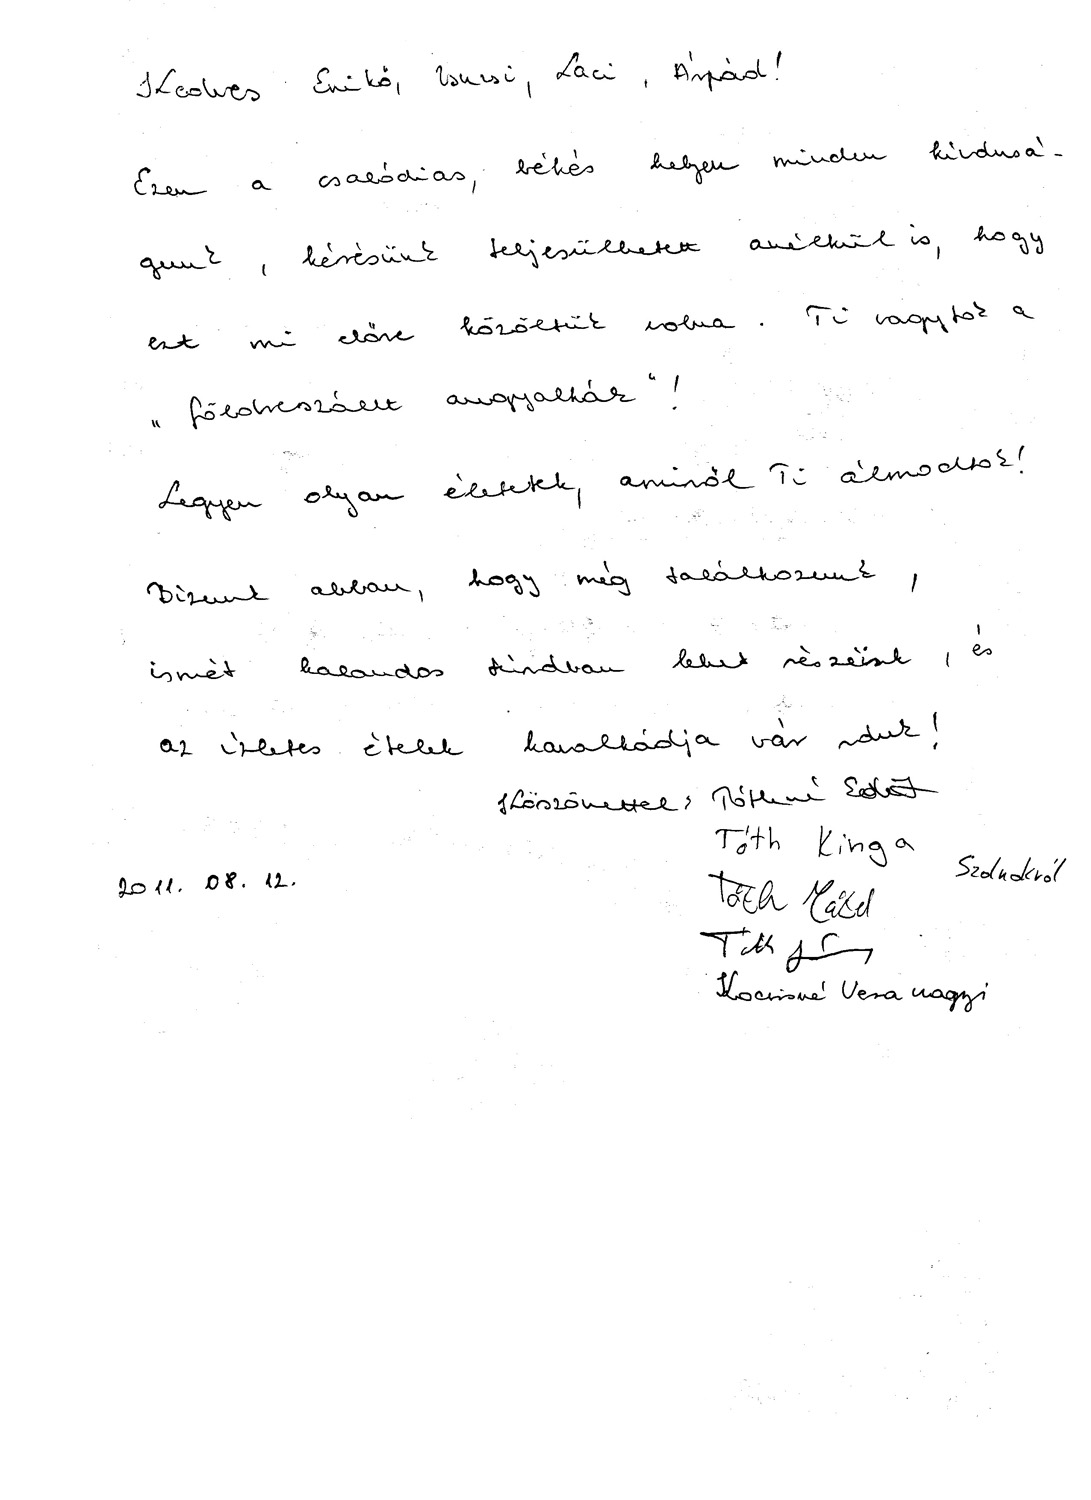 Kedves Enikő, Icuksi, Laci, Árpád!
Ezen a családias, békés helyen minden kívánsá-
gunk, kérésünk teljesülhetett anélkül is, hogy
ezt mi előre közöltük volna. Ti vagytok a
„földreszállt angyalkák"!
Legyen olyan életetek, amiről Ti álmodtok!
Bízunk abban, hogy még találkozunk,
ismét kalandos túrában lehet részünk, és
az ízletes ételek kavalkádja vár ránk!
Köszönettel: Tóthné
Tóth Kinga
Szolnokról
2011. 08. 12.
Tóth Máté
Tóth
Kocsisné Vera nagyi